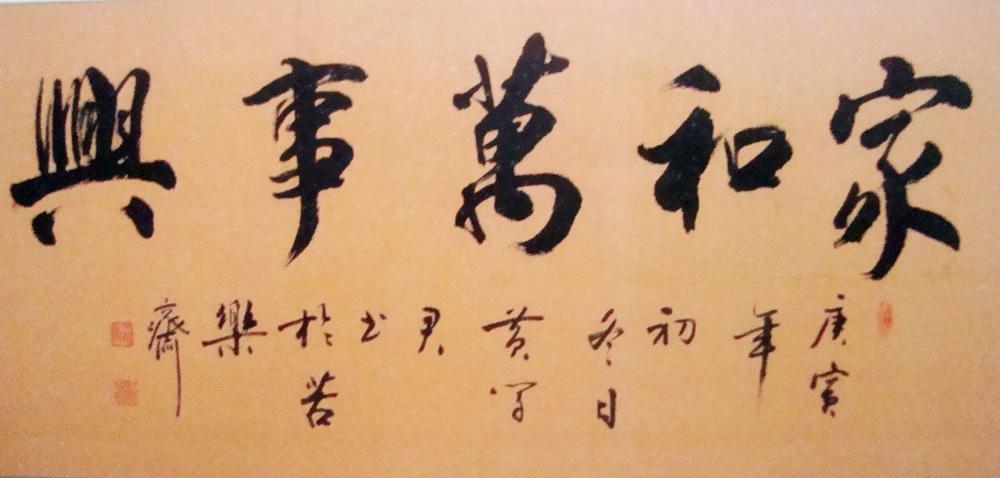 家和萬事興
庚寅年初冬日黃君书於苦樂齋